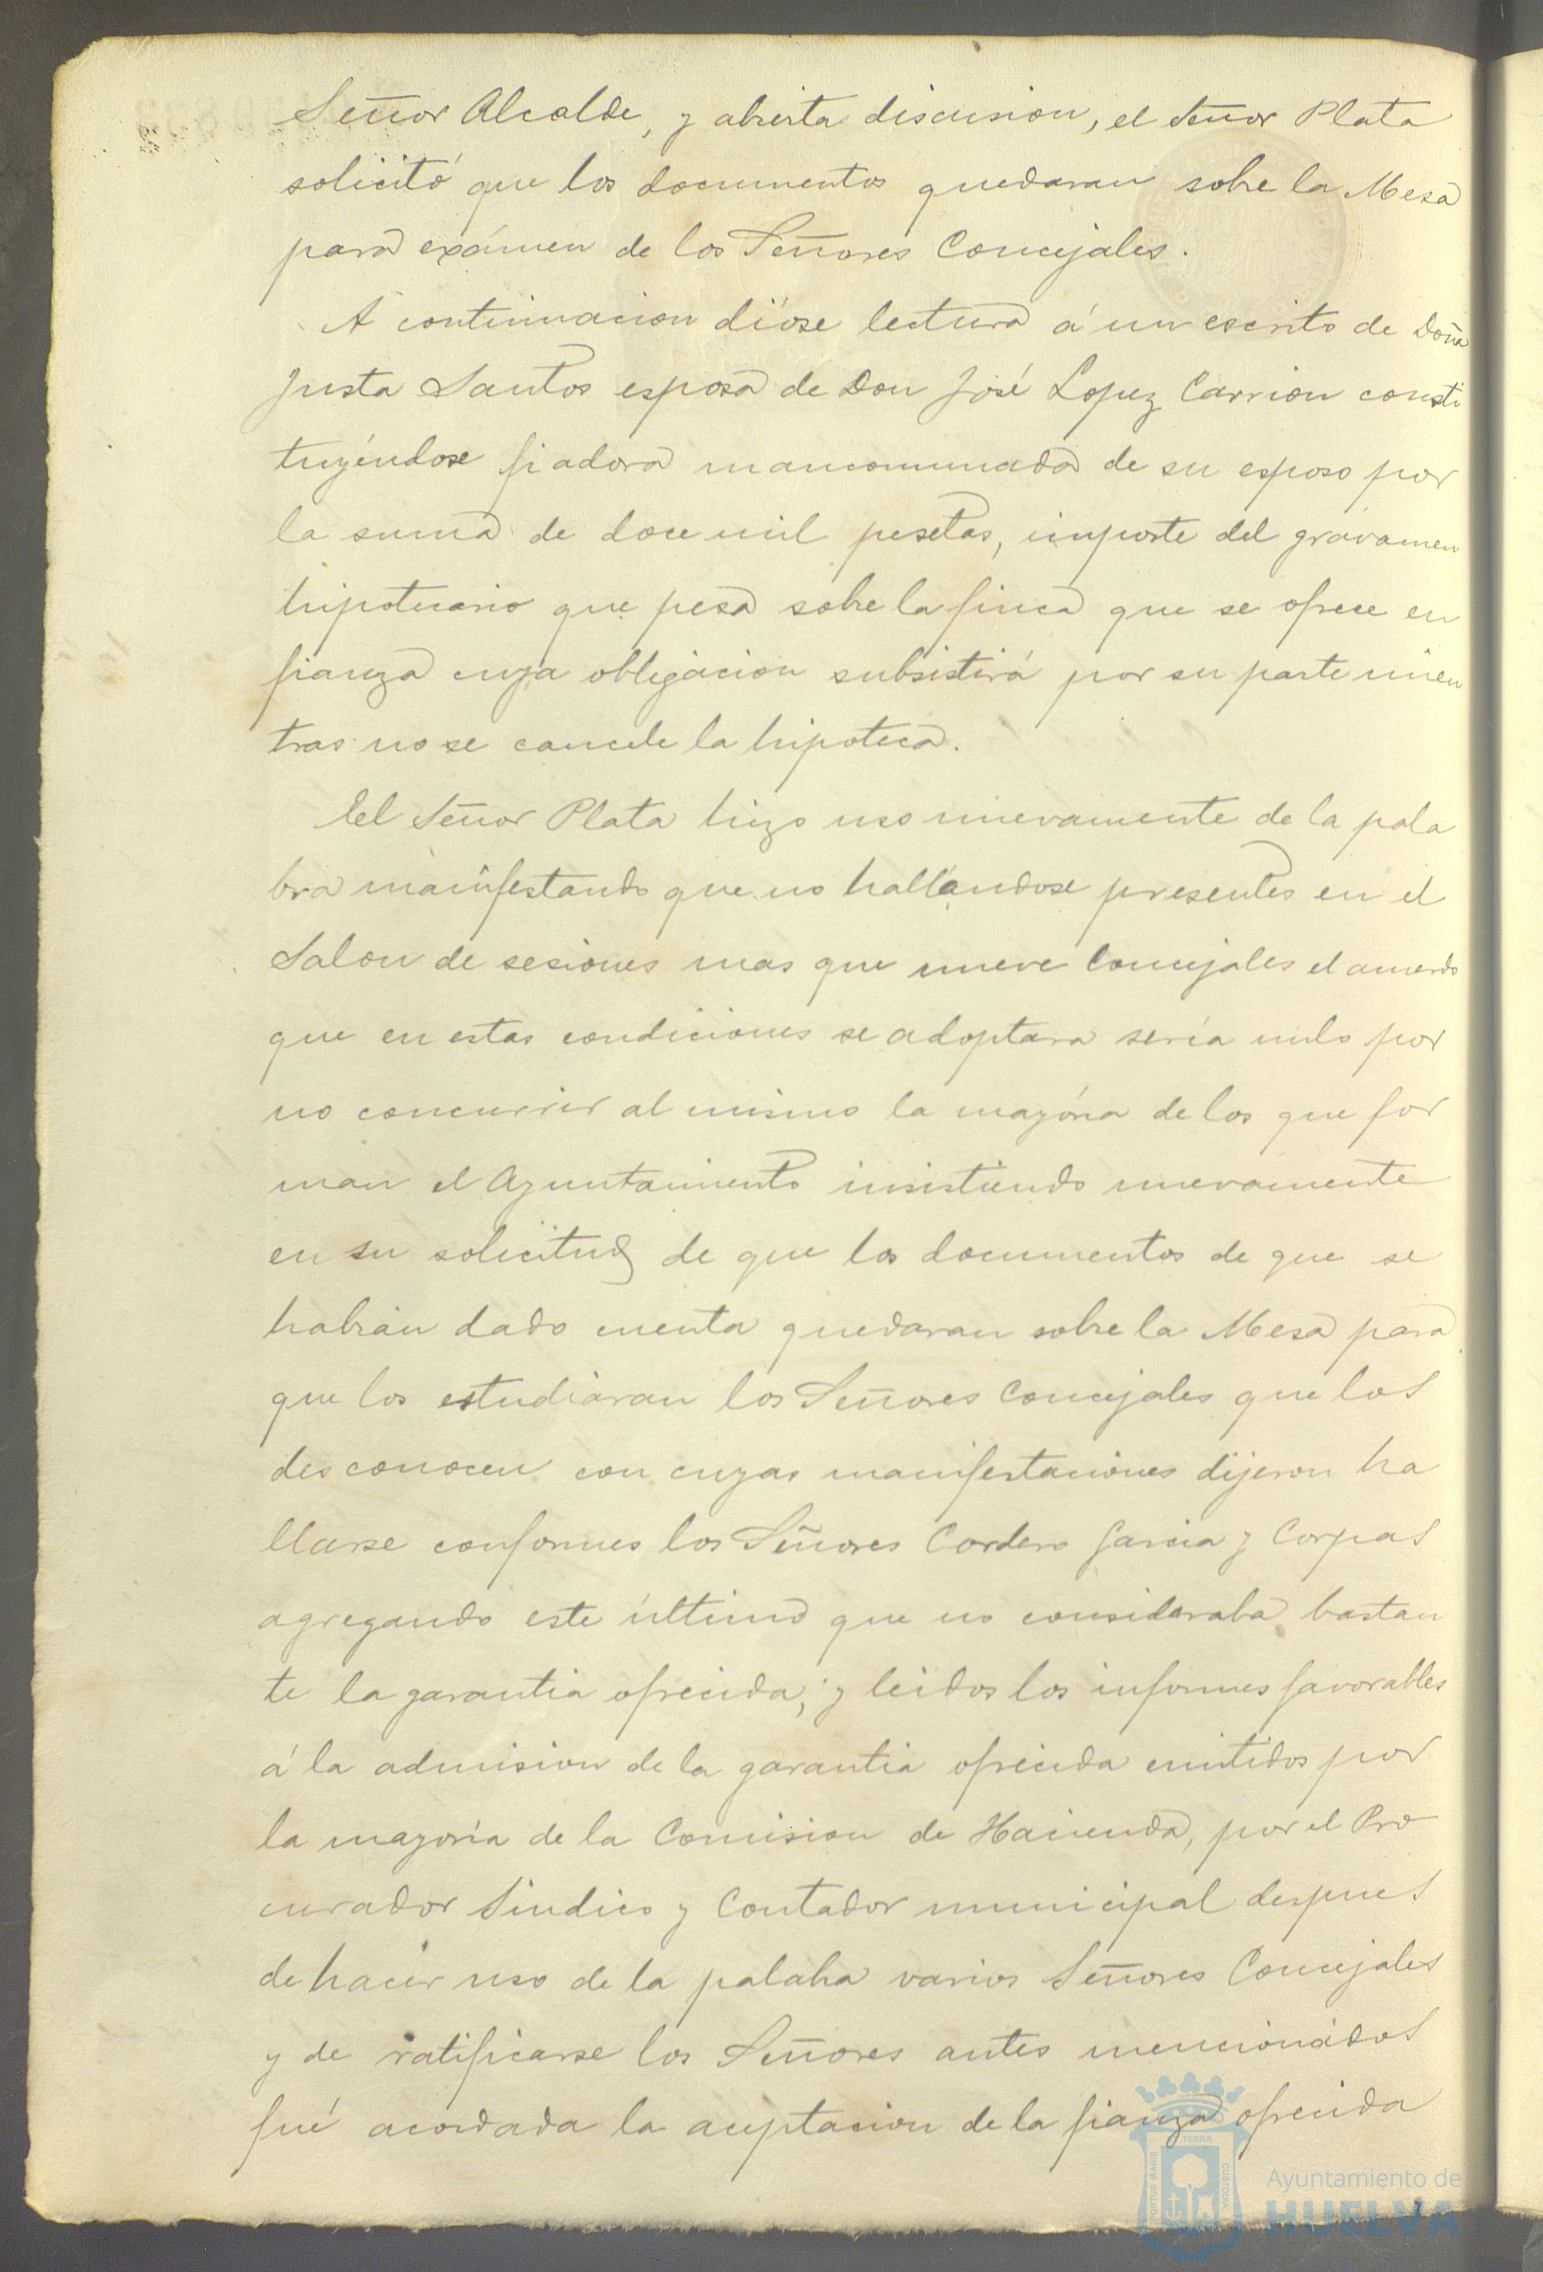 Señor Alcalde, y abierta discusion, el Señor Plata
solicitó que los documentos quedaran sobre la Mesa
para exámen de los Señores Concejales.
A continuacion dióse lectura á un escrito de Doña
Justa Santos esposa de Don José Lopez Carrion consti
tuyéndose fiadora mancomunada de su esposo por
la suma de doce mil pesetas, importe del gravamen
hipotecario que pesa sobre la finca que se ofrece en
fianza cuya obligacion subsistirá por su parte mien
tras no se cancele la hipoteca.
El Señor Plata hizo uso nuevamente de la pala
bra manifestando que no hallandose presentes en el
Salon de sesiones mas que nueve Concejales el acuerdo
que en estas condiciones se adoptara sería nulo por
no concurrir al mismo la mayoría de los que for
man el Ayuntamiento insistiendo nuevamente
en su solicitud de que los documentos de que se
habían dado cuenta quedaran sobre la Mesa para
que los estudiaran los Señores Concejales que los
desconocen con cuyas manifestaciones dijeron ha
llarse conformes los Señores Cordero Garcia y Corpas
agregando este último que no consideraba bastan
te la garantia ofrecida; y leidos los informes favorables
á la admision de la garantia ofrecida emitidos por
la mayoría de la Comision de Hacienda, por el Pro
curador Sindico y Contador municipal despues
de hacer uso de la palabra varios Señores Concejales
y de ratificarse los Señores antes mencionados
fué acordada la aceptacion de la fianza ofrecida
PORTUS MARIS TERRA CUSTODIA
Ayuntamiento de
HUELVA